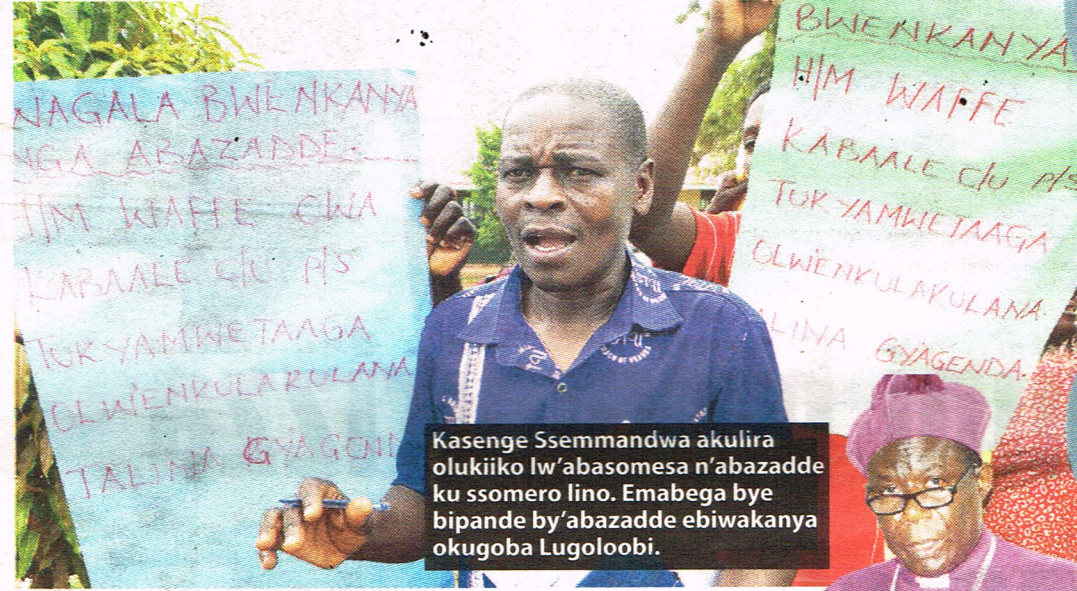 NAGALA BWENKANYA
NGA ABAZADDE.
H/M WAFFE CWA
KABAALE C/U P/S
TUKYAMWETAAGA
OLWENKULAKULANA
TALINA GYAGEND
BWENKANYA
H/M WAFFE
KABAALE C/U P/S
TUKYAMWETAAGA
OLWENKULAKULANA.
LINA GYAGENDA.
Kasenge Ssemmandwa akulira
olukiiko lw’abasomesa n’abazadde
ku ssomero lino. Emabega bye
bipande by’abazadde ebiwakanya
okugoba Lugoloobi.